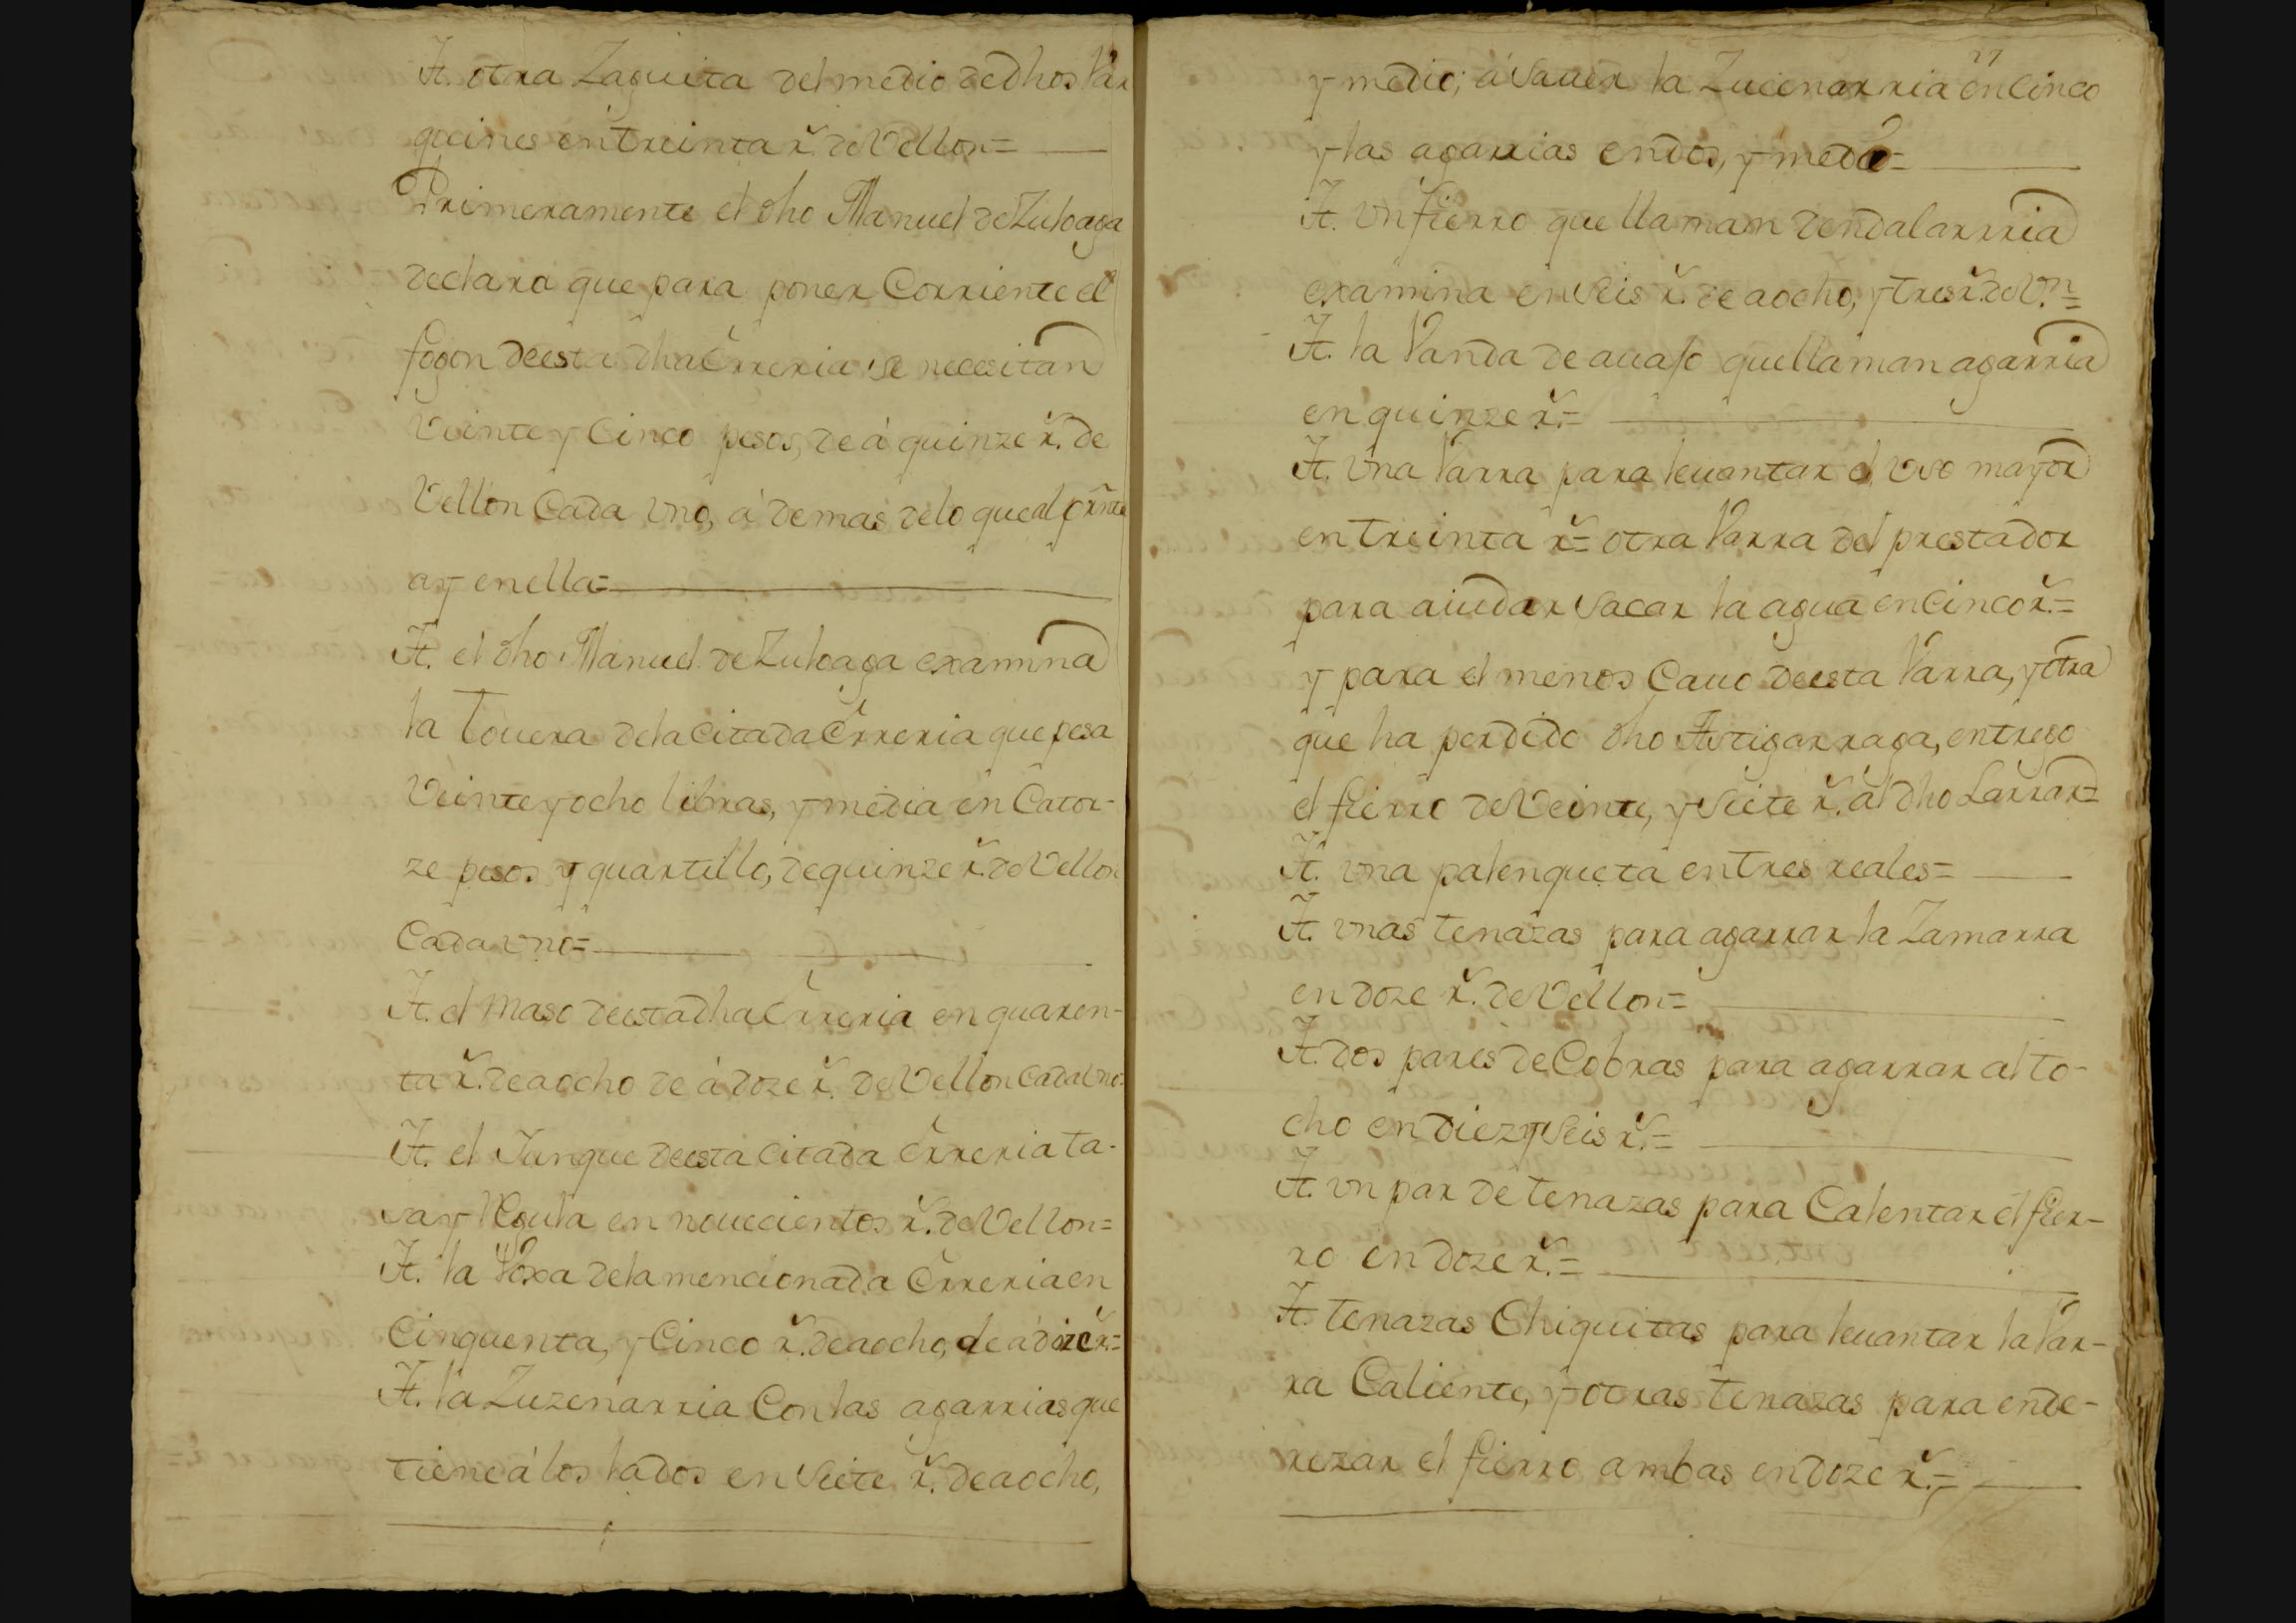 It. otra Zaguita del medio de dhos Var
quines en treinta r.̃ de Vellon=
Primeramente el dho Manuel de Zuloaga
declara que para poner Corriente el
fogon de esta dha Errreria se necesitan
Veinte y Cinco pesos, de á quinze r.̃ de
Vellon Cada Vno, á demas de lo que al prñte
ay en ella=
It. el dho Manuel de Zuloaga examina
la Touera de la Citada Errreria que pesa
Veinte y ocho libras, y media en Cator-
ze pesos y quartillo, de quinze r.̃ de Vellon
Cada vno=
It. el Maso de esta dha Errreria en quaren-
ta r.̃ de a ocho de á doze r.̃ de Vellon Cada Vno.
It. el Junque de esta Citada Errreria ta-
sa y Regula en nouecientos r.̃ de Vellon=
It. la Voga de la mencionada Errreria en
Cinquenta, y Cinco r.̃ de a ocho, de á doze r.̃=
It. la Zuzenarria Con las agarrias que
tiene á los lados en Siete r.̃ de a ocho,
27
y medio; á Sauer la Zucenarria en Cinco
y las agarrias en dos, y medio=
It. Vn fierro que llaman dendalarrria
examina en Seis r.̃ de a ocho, y tres r.̃ de V.n=
It. la Vanda de auajo que llaman agarria
en quinze r.̃=
It. Vna Varra para leuantar el Vso mayor
en treinta r.̃= otra Varra del prestador
para aiudar Sacar la agua en Cinco r.̃=
y para el menos Cauo de esta Varra, y otra
que ha perdido dho Astigarraga, entrego
el fierro de Veinte, y Siete r.̃ al dho Larrar=
It. vna palenqueta en tres reales=
It. vnas tenazas para agarrar la Zamarra
en doze r.̃ de Vellon=
It. dos pares de Cobras para agarrar al to-
cho en diez y Seis r.̃=
It. vn par de tenazas para Calentar el fier-
ro en doze r.̃=
It. tenazas Chiquitas para leuantar la Var-
ra Caliente, y otras tenazas para ende-
rezar el fierro ambas en doze r.̃=